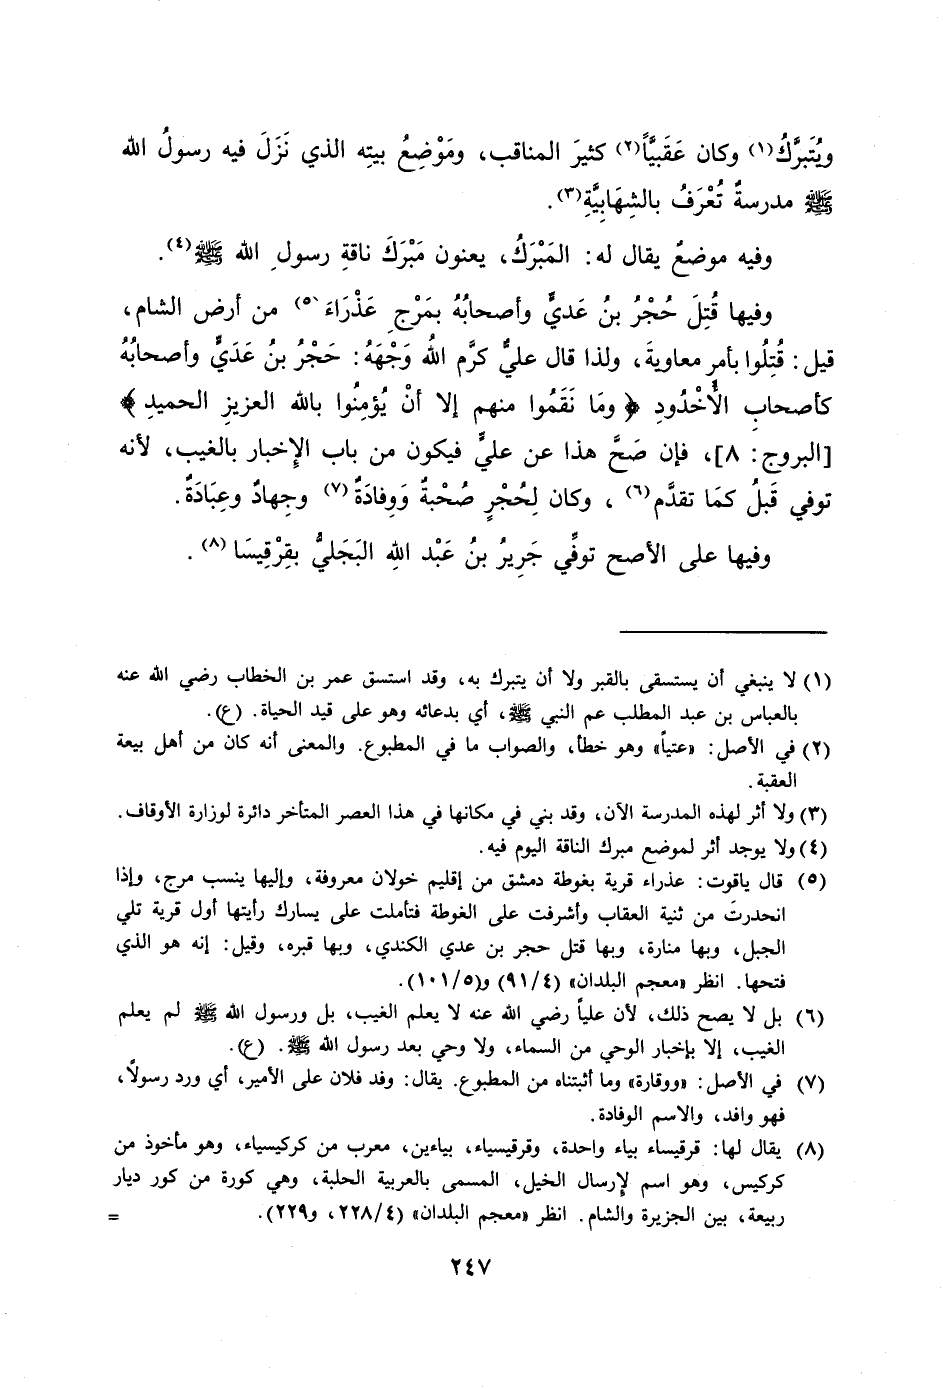 ويُتَبرَّكُ(١) وكان عَقَبيَّاً(٢) كثيرَ المناقب، ومَوْضِعُ بيتِه الذي نَزَلَ فيه رسولُ الله
ﷺ مدرسةٌ تُعْرَفُ بالشِهَابيَّةِ(٣).
وفيه موضعٌ يقال له: المَبْرَكُ، يعنون مَبْرَكَ ناقةِ رسولِ الله ﷺ(٤).
وفيها قُتِلَ حُجْرُ بنُ عَديٍّ وأصحابُهُ بمَرْجِ عَذْرَاءَ(٥) من أرض الشام،
قيل: قُتِلُوا بأمرِ معاويةَ، ولذا قال عليٌّ كرَّم اللهُ وَجْهَهُ: حَجْرُ بنُ عَدَيٍّ وأصحابُهُ
كأصحابِ الأُخْدُودِ ﴿ وما نَقَمُوا منهم إلا أنْ يُؤمِنُوا بالله العزيزِ الحميدِ ﴾
[البروج: ٨]، فإن صَحَّ هذا عن عليٍّ فيكون من باب الإِخبار بالغيب، لأنه
توفي قَبلُ كمَا تقدَّم(٦) ، وكان لِحُجْرٍ صُحْبةٌ وَوِفادَةٌ(٧) وجِهادٌ وعِبَادَةٌ.
وفيها على الأصح توفِّي جَرِيرُ بنُ عَبْد اللهِ البَجَليُّ بقِرْقِيسَا(٨) .
(١) لا ينبغي أن يستسقى بالقبر ولا أن يتبرك به، وقد استسق عمر بن الخطاب رضي الله عنه
بالعباس بن عبد المطلب عم النبي ﷺ، أي بدعائه وهو على قيد الحياة. (ع).
(٢) في الأصل: «عتياً» وهو خطأ، والصواب ما في المطبوع. والمعنى أنه كان من أهل بيعة
العقبة.
(٣) ولا أثر لهذه المدرسة الآن، وقد بني في مكانها في هذا العصر المتأخر دائرة لوزارة الأوقاف.
(٤) ولا يوجد أثر لموضع مبرك الناقة اليوم فيه.
(٥) قال ياقوت: عذراء قرية بغوطة دمشق من إقليم خولان معروفة، وإليها ينسب مرج، وإذا
انحدرتَ من ثنية العقاب وأشرفت على الغوطة فتأملت على يسارك رأيتها أول قرية تلي
الجبل، وبها منارة، وبها قتل حجر بن عدي الكندي، وبها قبره، وقيل: إنه هو الذي
فتحها. انظر «معجم البلدان» (٩١/٤) و(١٠١/٥).
(٦) بل لا يصح ذلك، لأن علياً رضي الله عنه لا يعلم الغيب، بل ورسول الله ﷺ لم يعلم
الغيب، إلا بإخبار الوحي من السماء، ولا وحي بعد رسول الله ﷺ. (ع).
(٧) في الأصل: «ووقارة» وما أثبتناه من المطبوع. يقال: وفد فلان على الأمير، أي ورد رسولاً،
فهو وافد، والاسم الوفادة.
(٨) يقال لها: قرقيساء بياء واحدة، وقرقيسياء، بياءين، معرب من كركيسياء، وهو مأخوذ من
كركيس، وهو اسم لإِرسال الخيل، المسمى بالعربية الحلبة، وهي كورة من كور ديار
ربيعة، بين الجزيرة والشام. انظر «معجم البلدان» (٢٢٨/٤، و٢٢٩). =
٢٤٧